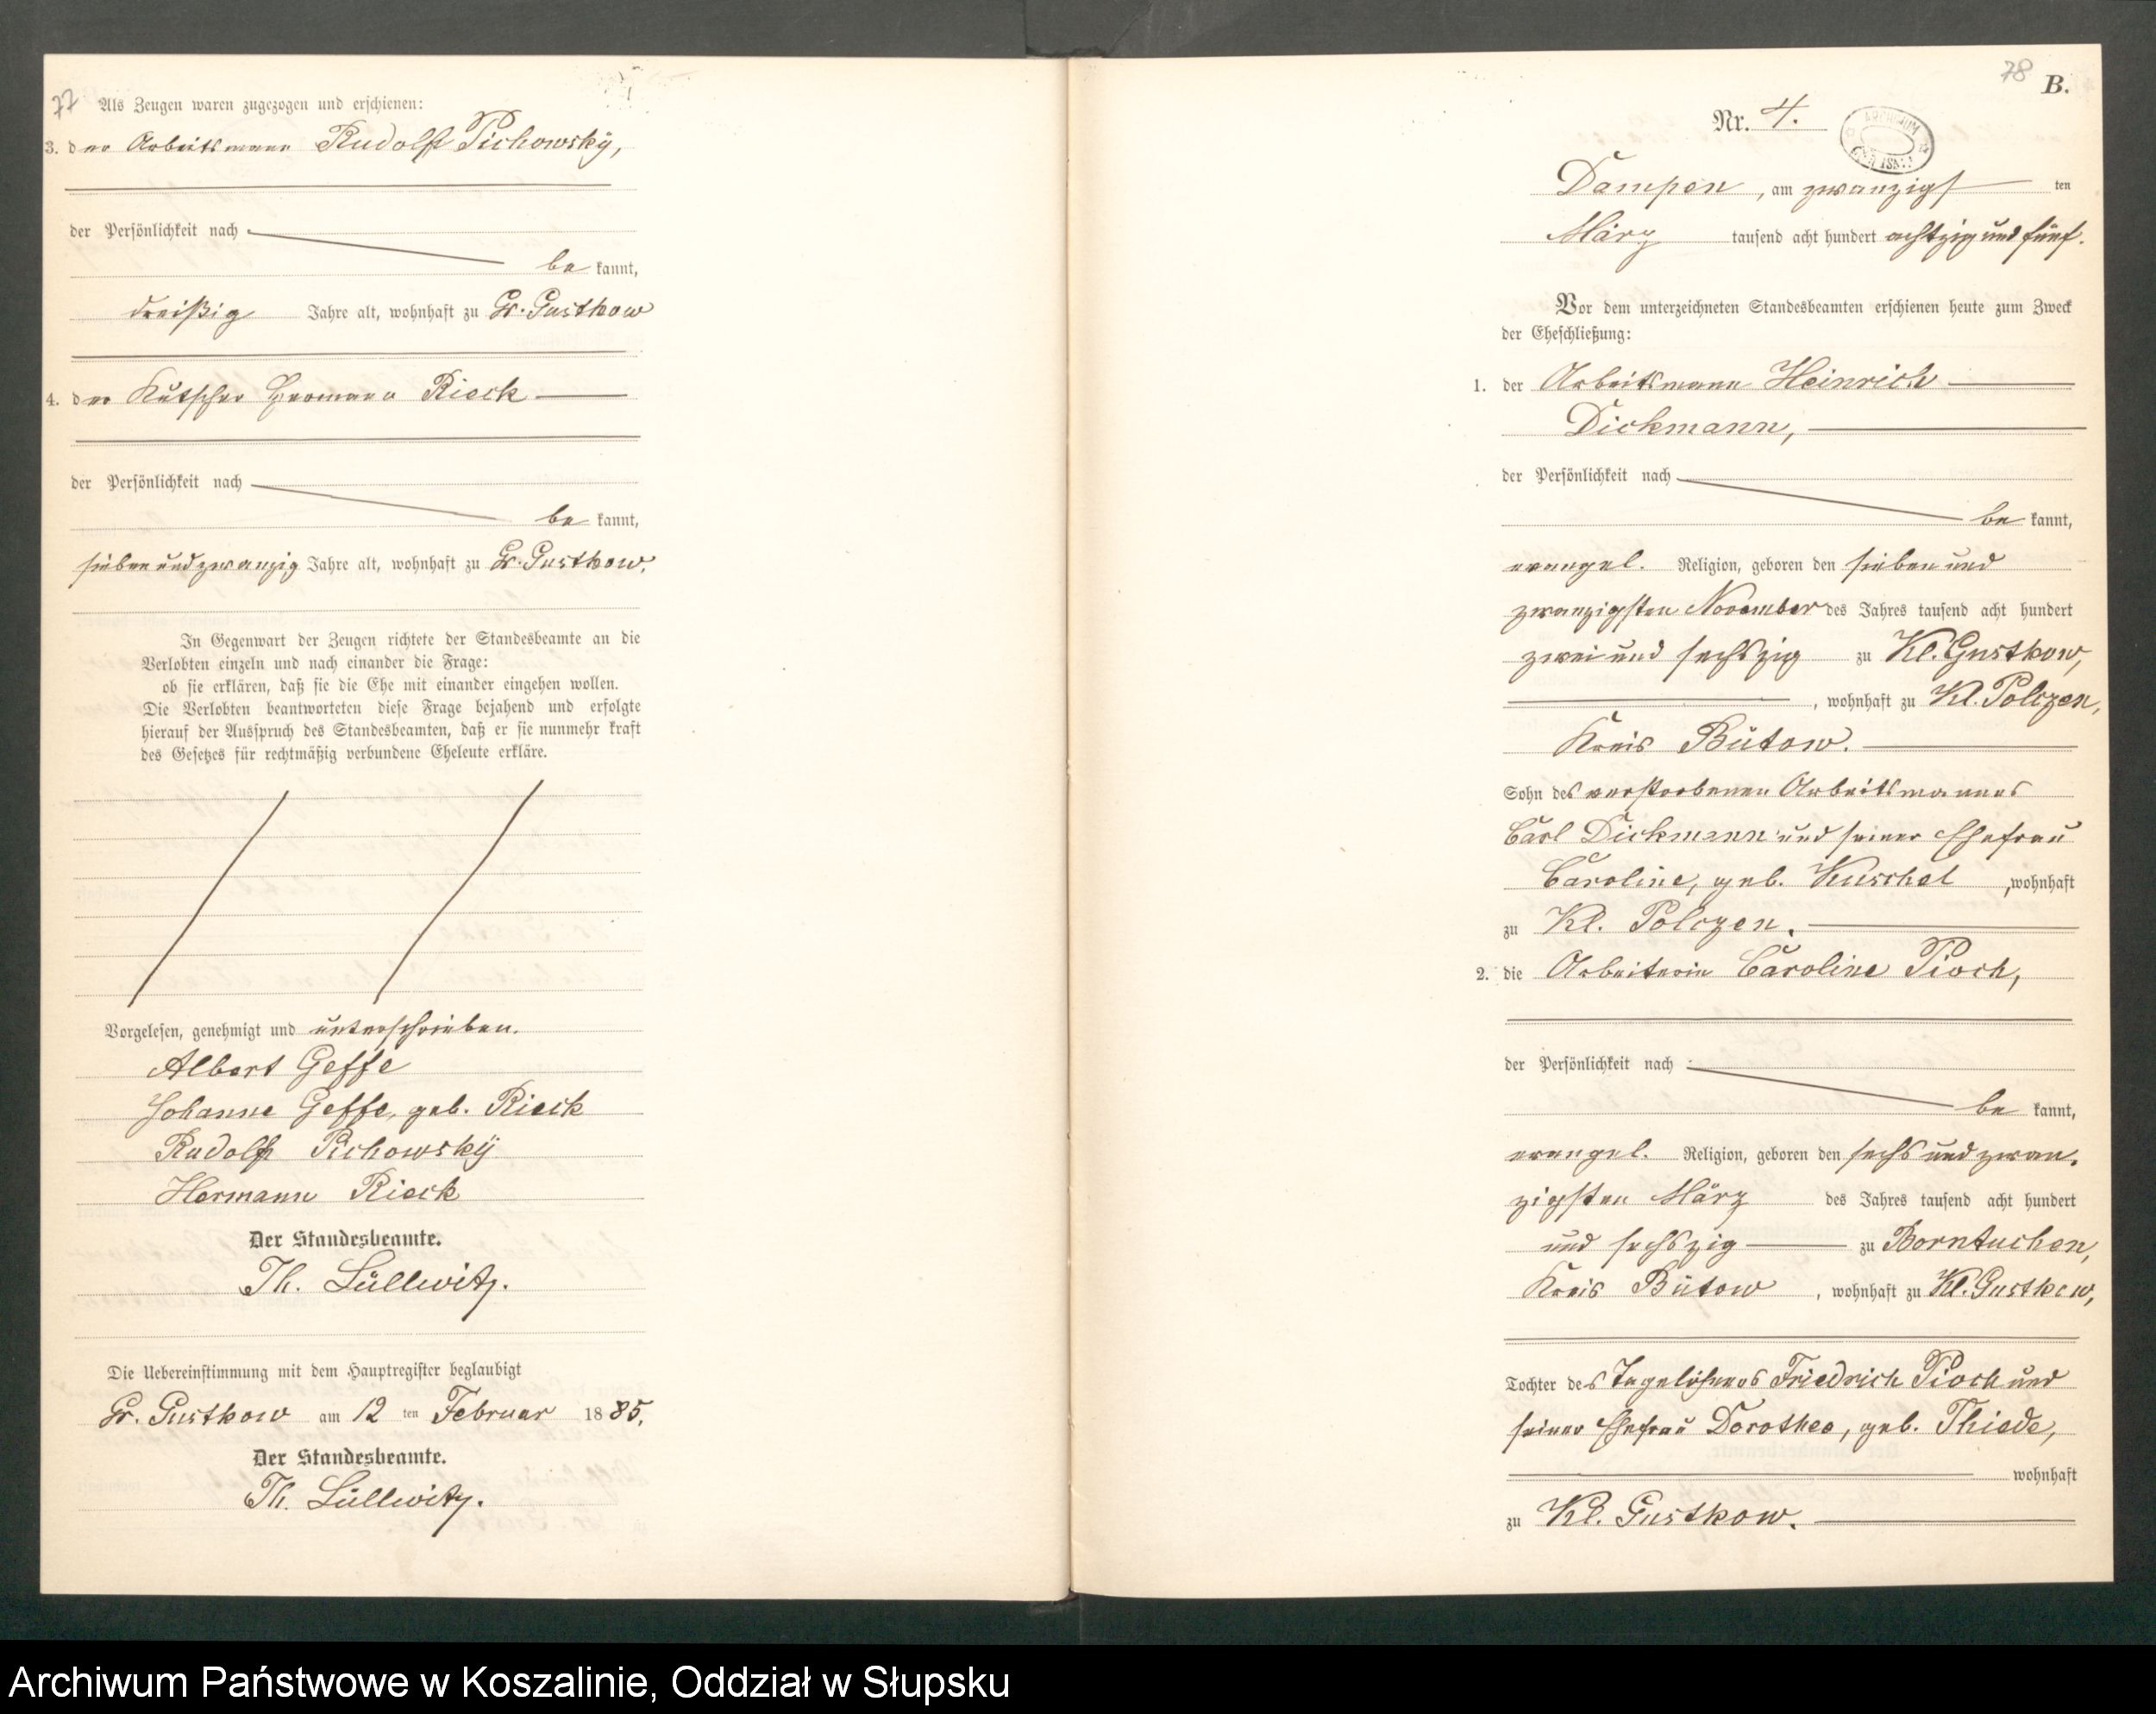 77 Als Zeugen waren zugezogen und erschienen:
3. der Arbeitsmann Rudolf Pichowsky,
der Persönlichkeit nach
be kannt,
dreißig Jahre alt, wohnhaft zu Gr. Gustkow
4. der Kutscher Hermann Rieck
der Persönlichkeit nach
be kannt,
siebenundzwanzig Jahre alt, wohnhaft zu Gr. Gustkow.
In Gegenwart der Zeugen richtete der Standesbeamte an die
Verlobten einzeln und nach einander die Frage:
ob sie erklären, daß sie die Ehe mit einander eingehen wollen.
Die Verlobten beantworteten diese Frage bejahend und erfolgte
hierauf der Ausspruch des Standesbeamten, daß er sie nunmehr kraft
des Gesetzes für rechtmäßig verbundene Eheleute erkläre.
Vorgelesen, genehmigt und unterschrieben.
Albert Geffe
Johanne Geffe, geb. Rieck
Rudolf Pichowsky
Hermann Rieck
Der Standesbeamte.
Th. Lüllwitz.
Die Uebereinstimmung mit dem Hauptregister beglaubigt
Gr. Gustkow am 12 ten Februar 1885.
Der Standesbeamte.
Th. Lüllwitz.
78 B.
Nr. 4.
ARCHIWUM
Dampen, am zwanzigs ten
März tausend acht hundert achtzig und fünf.
Vor dem unterzeichneten Standesbeamten erschienen heute zum Zweck
der Eheschließung:
1. der Arbeitsmann Heinrich
Dickmann,
der Persönlichkeit nach
be kannt,
evangel. Religion, geboren den sieben und
zwanzigsten November des Jahres tausend acht hundert
zwei und sechszig zu Kl. Gustkow,
, wohnhaft zu Kl. Polczen,
Kreis Bütow.
Sohn des verstorbenen Arbeitsmannes
Carl Dickmann und seiner Ehefrau
Caroline, geb. Kuschel, wohnhaft
zu Kl. Polczen.
2. die Arbeiterin Caroline Pioch,
der Persönlichkeit nach
be kannt,
evangel. Religion, geboren den sechs und zwan-
zigsten März des Jahres tausend acht hundert
und sechszig zu Borntuchen,
Kreis Bütow, wohnhaft zu Kl. Gustkow,
Tochter des Tagelöhners Friedrich Pioch und
seiner Ehefrau Dorothea, geb. Thiede,
wohnhaft
zu Kl. Gustkow.
Archiwum Państwowe w Koszalinie, Oddział w Słupsku